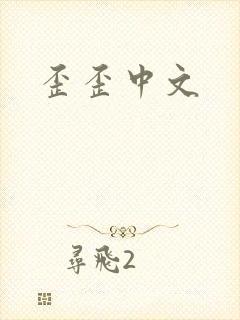 歪歪中文
尋飛2